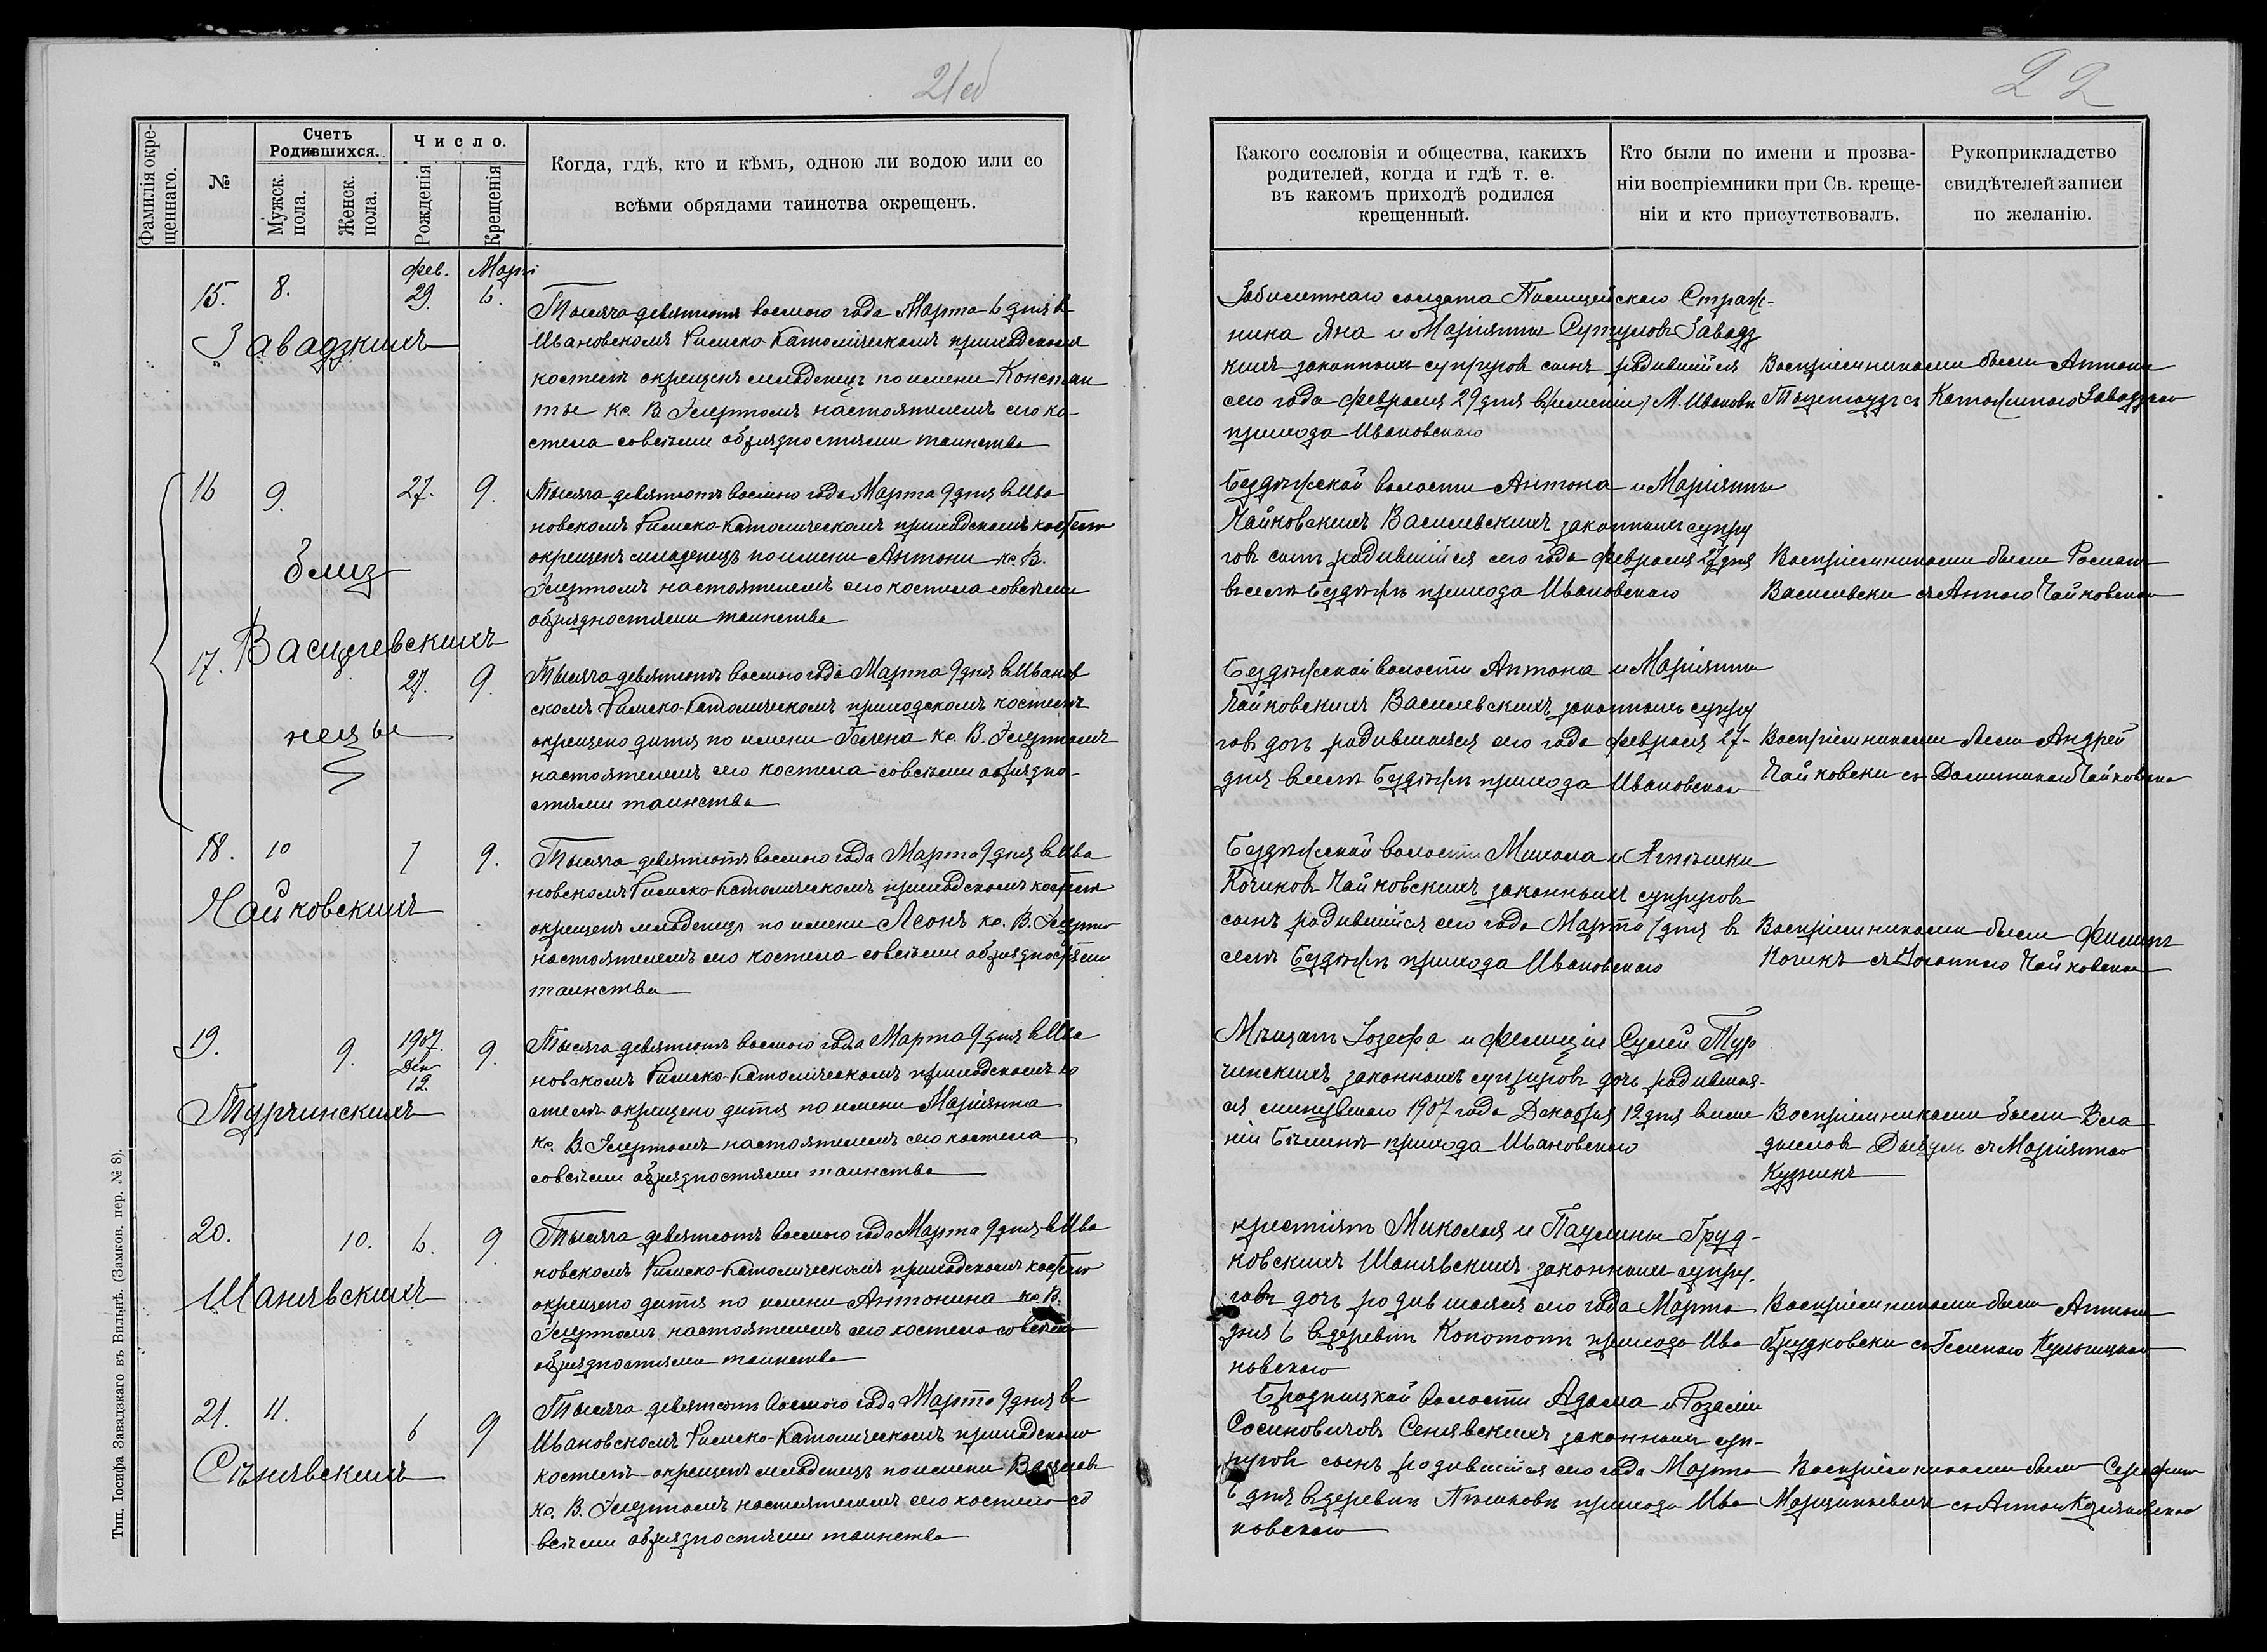 21об
Фамилія окре-
щеннаго.
№
Счетъ
Родившихся.
Мужск.
пола.
Женск.
пола.
Число.
Рожденія
Крещенія
Когда, гдѣ, кто и кѣмъ, одною ли водою или со
всѣми обрядами таинства окрещенъ.
15.
8.
Фев.
29.
Март
6.
Завадзкихъ
Тысяча девятьсотъ восмого года Марта 6 дня в
Ивановскомъ Римско-Католическомъ приходскомъ
костелѣ окрещенъ младенецъ по имени Констан
ты кс. В. настоятелемъ сего ко-
стела совсѣми обрядностями таинства
16
9.
27.
9.
близ
Тысяча девятьсотъ восмого года Марта 9 дня в Ива
новскомъ Римско-Католическомъ приходскомъ костелѣ
окрещенъ младенецъ по имени Антони кс. В.
настоятелемъ сего костела совсѣми
обрядностями таинства
17.
Василевскихъ
27.
9.
нецы
Тысяча девятьсотъ восмого года Марта 9 дня в Иванов
скомъ Римско-Католическомъ приходскомъ костелѣ
окрещено дитя по имени Гелена кс. В.
настоятелемъ сего костела совсѣми обрядно-
стями таинства
18.
10
7
9.
Чайковскихъ
Тысяча девятьсотъ восмого года Марта 9 дня в Ива
новскомъ Римско-Католическомъ приходскомъ костелѣ
окрещенъ младенецъ по имени Леонъ кс. В.
настоятелемъ сего костела совсѣми обрядностями
таинства
19.
9.
1907.
Дек
12.
9.
Турчинскихъ
Тысяча девятьсотъ восмого года Марта 9 дня в Ива
новскомъ Римско-Католическомъ приходскомъ ко
стелѣ окрещено дитя по имени Маріянна
кс. В. настоятелемъ сего костела
совсѣми обрядностями таинства
20.
10.
6.
9.
Шанявскихъ
Тысяча девятьсотъ восмого года Марта 9 дня в Ива
новскомъ Римско-Католическомъ приходскомъ костелѣ
окрещено дитя по имени Антонина кс. В.
настоятелемъ сего костела совсѣми
обрядностями таинства
21.
11.
6
9
Сѣнявскихъ
Тысяча девятьсотъ восмого года Марта 9 дня в
Ивановскомъ Римско-Католическомъ приходскомъ
костелѣ окрещенъ младенецъ по имени Вацлавъ
кс. В. настоятелемъ сего костела со
всѣми обрядностями таинства
Тип. Іосифа Завадзкаго въ Вильнѣ. (Замков. пер. № 8).
22
Какого сословія и общества, какихъ
родителей, когда и гдѣ т. е.
въ какомъ приходѣ родился
крещенный.
Кто были по имени и прозва-
ніи воспріемники при Св. креще-
ніи и кто присутствовалъ.
Рукоприкладство
свидѣтелей записи
по желанію.
солдата Полицейскаго Страж-
ника Яна и Маріянны Завадз
кихъ законныхъ супруговъ сынъ родившійся
сего года Февраля 29 дня в имѣніи М. Иванови
прихода Ивановскаго
Воспріемниками были Антони
с Завадзкою
Бездѣжской волости Антона и Маріянны
Чайковскихъ Василевскихъ законныхъ супру
говъ сынъ родившійся сего года Февраля 27 дня
в селѣ Бездѣжѣ прихода Ивановскаго
Воспріемниками были Романъ
Василевски съ Анною Чайковскою
Бездѣжской волости Антона и Маріянны
Чайковскихъ Василевскихъ законныхъ супру
говъ дочь родившаяся сего года Февраля 27-
дня в селѣ Бездѣжѣ прихода Ивановскаго
Воспріемниками были Андрей
Чайковски съ Доминикою Чайковскою
Бездѣжской волости Михала и Агнѣшки
Кочиковъ Чайковскихъ законныхъ супруговъ
сынъ родившійся сего года Марта 7 дня в
селѣ Бездѣжѣ прихода Ивановскаго
Воспріемниками были Филипъ
Кочикъ съ Чайковскою
Мѣщанъ Іозефа и Фелиціи Тур
чинскихъ законныхъ супруговъ дочь родившая-
ся минувшаго 1907 года Декабря 12 дня в имѣ
ніи прихода Ивановскаго
Воспріемниками были Вла
дыславъ съ Маріянною
Кузникъ
крестіянъ Миколая и Паулины Груд-
ковскихъ Шанявскихъ законныхъ супру-
говъ дочь родившаяся сего года Марта
дня 6 в деревни прихода Ива
новскаго
Воспріемниками были Антони
Грудковски съ Геленою
Бродницкой волости Адама и Розаліи
Сосиновичовъ Сенявскихъ законныхъ суп-
руговъ сынъ родившійся сего года Марта
6 дня в деревни прихода Ива
новскаго
Воспріемниками были Серафинъ
Марцинкевичъ съ Анною